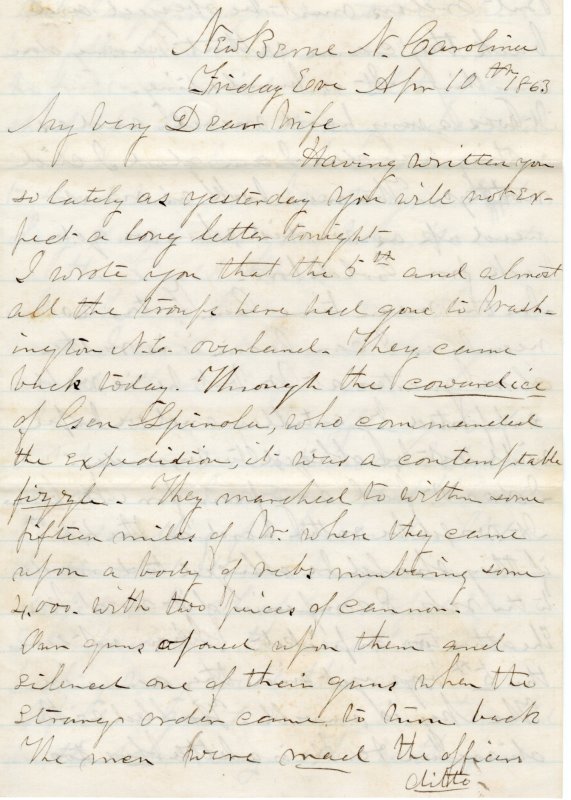 New Berne N. Carolina
Friday Eve Apr 10th 1863
My Very Dear Wife
Having written you
so lately as yesterday you will not ex-
pect a long letter tonight
I wrote you that the 5th and almost
all the troops here had gone to Wash-
ington N.C. overland. They came
back today. Through the cowardice
of Gen Spinola, who commanded
the expedision, it was a contemptable
fizzle. They marched to within some
fifteen miles of W. where they came
upon a body of rebs numbering some
4,000. with two pieces of cannon.
Our guns opened upon them and
silenced one of their guns when the
strange order came to turn back
The men were mad the officers
ditto